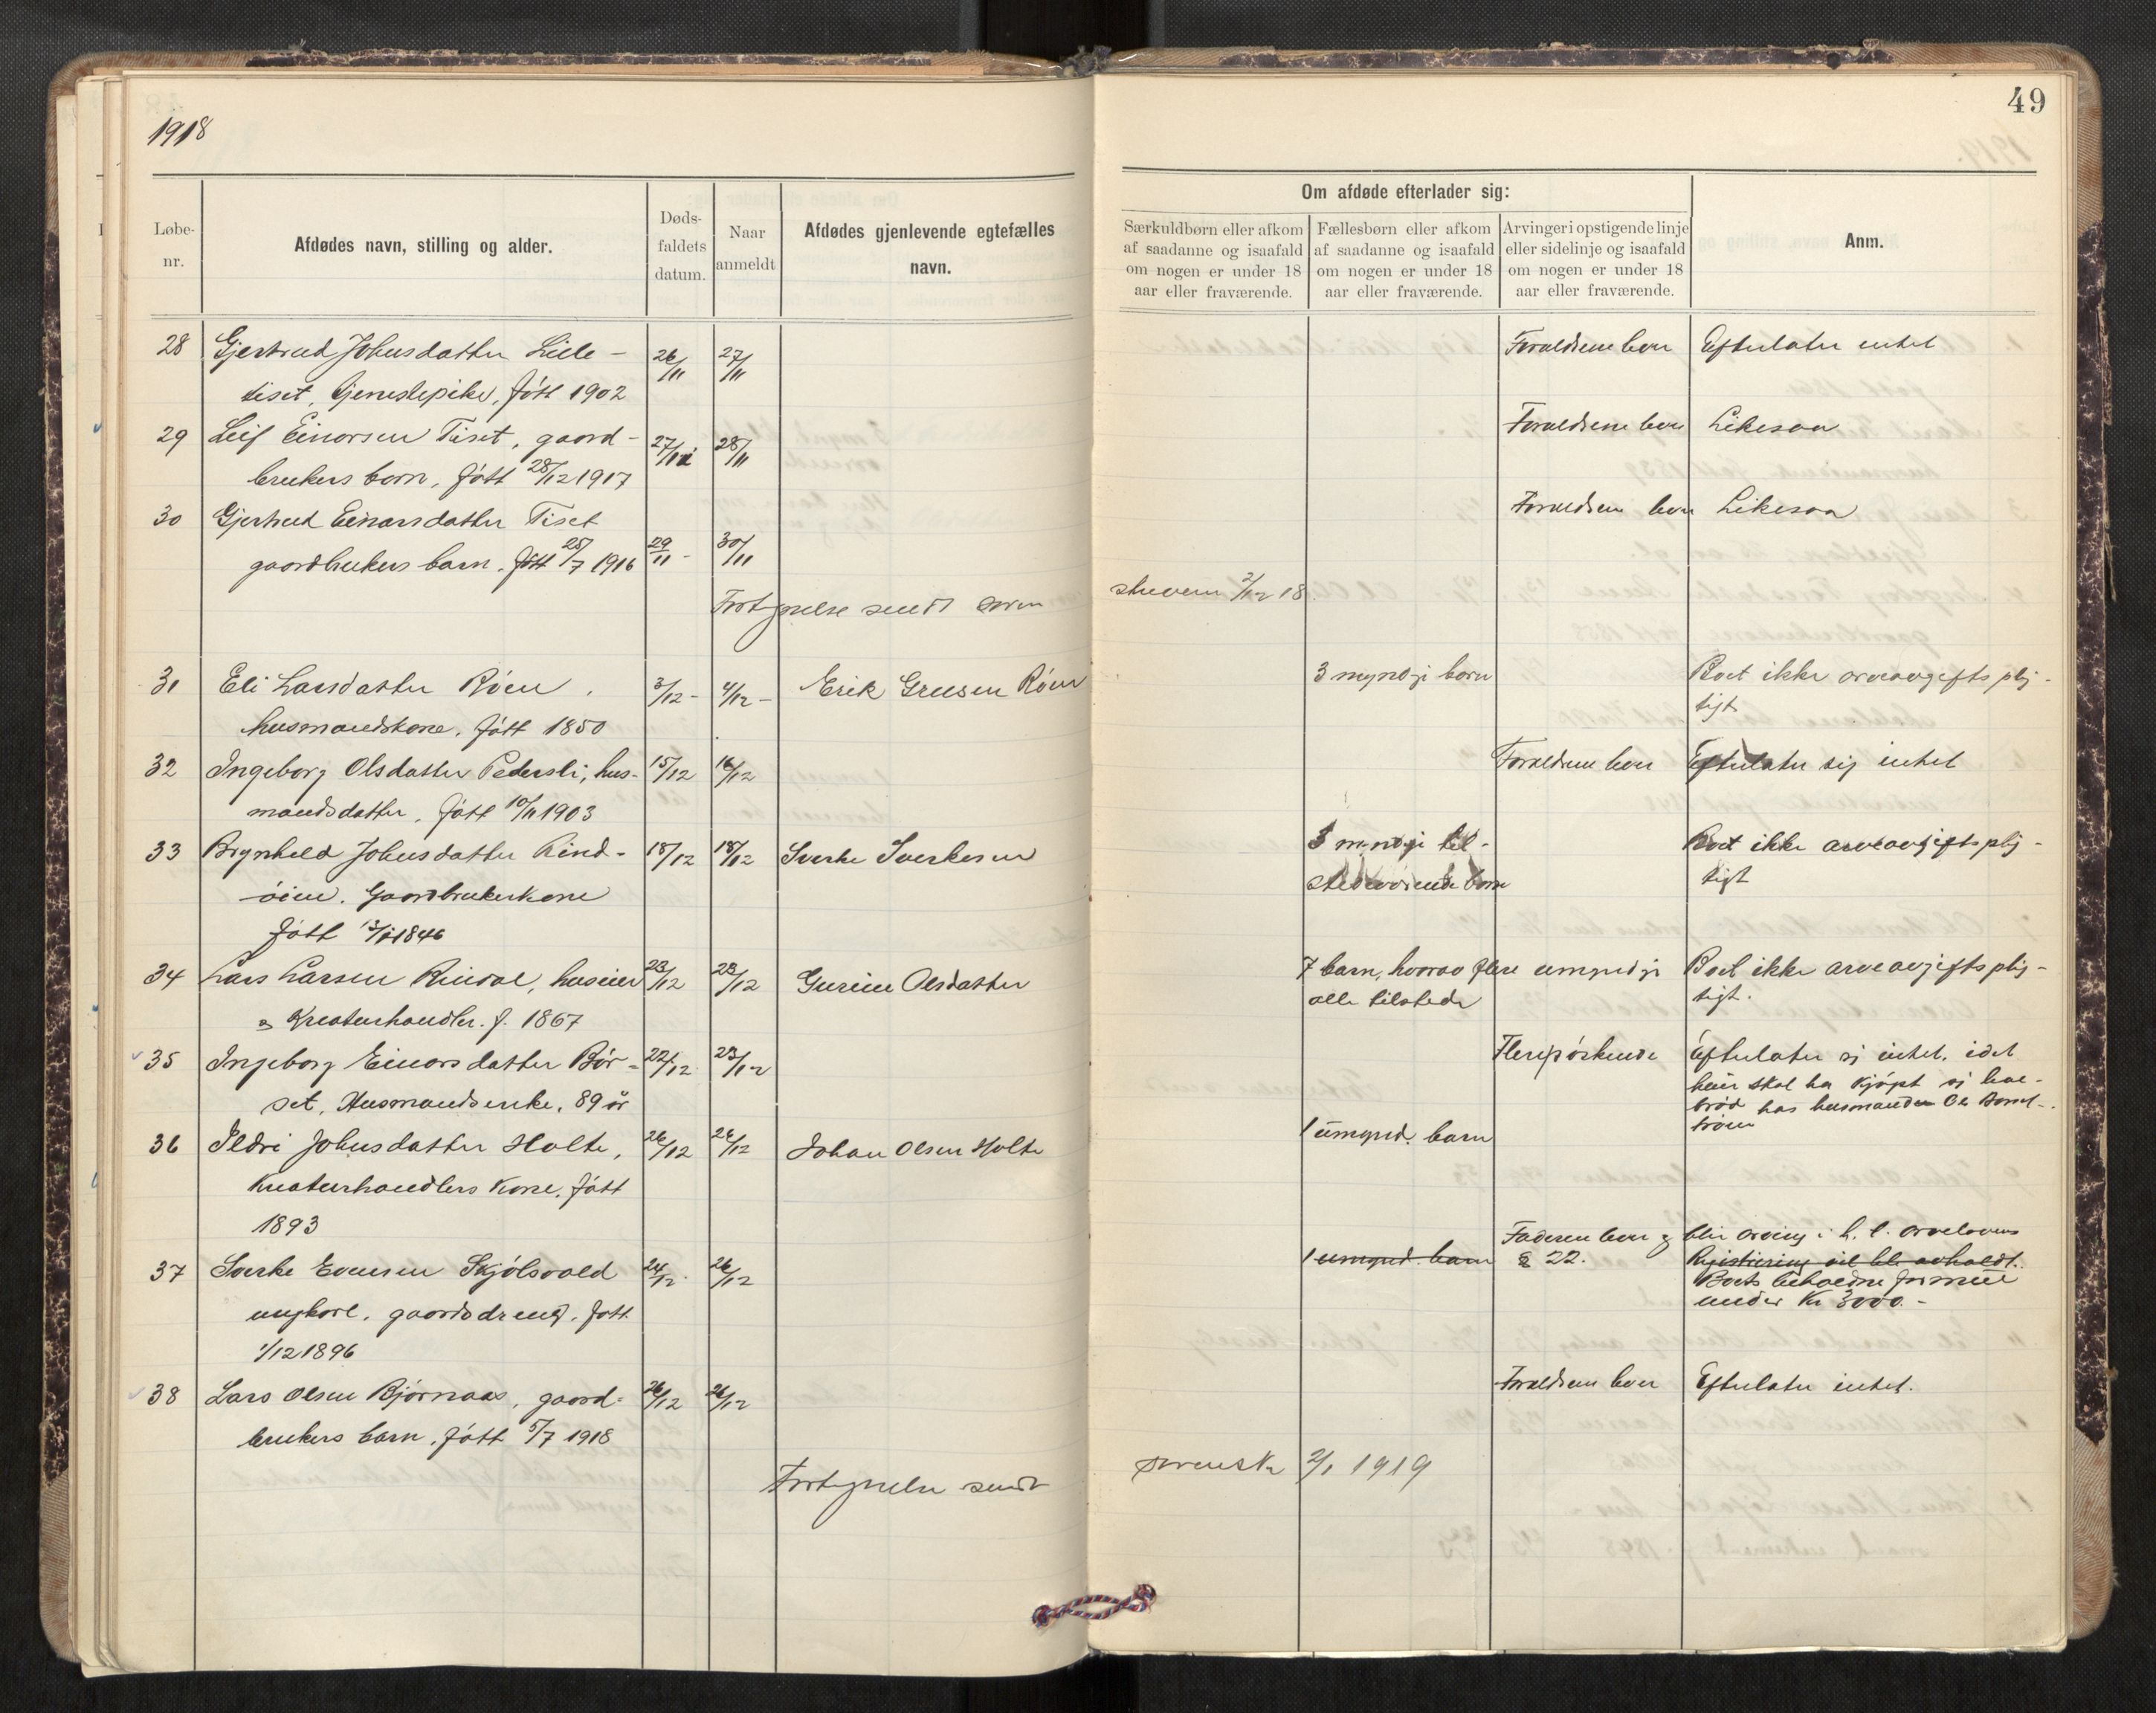 1918
49
Løbe-
nr.
Afdødes navn, stilling og alder.
Døds-
faldets
datum.
Naar
anmeldt
Afdødes gjenlevende egtefælles
navn.
Om afdøde efterlader sig:
Særkuldbørn eller afkom
af saadanne og isaafald
om nogen er under 18
aar eller fraværende.
Fællesbørn eller afkom
af saadanne og isaafald
om nogen er under 18
aar eller fraværende.
Arvinger i opstigende linje
eller sidelinje og isaafald
om nogen er under 18
aar eller fraværende.
Anm.
28 Gjertrud Johnsdatter Lille- 26/11 27/11 Foreldrene lever Efterlater intet
tiset, tjenestepike, født 1902
29 Leif Einarsen Tiset, gaard- 27/11 28/11 Foreldrene lever Likesaa
brukers barn, født 28/12 1917
30 Gjertrud Einarsdatter Tiset Foreldrene lever Likesaa
gaardbrukers barn. født 25/7 1916 29/11 - 30/11
Fortegnelse sendt soren
skriveren 2/12 18
31 Eli Larsdatter Røen. 3/12 - 4/12 - Erik Erik­sen Røen 3 myndige barn Boet ikke arveavgiftsplig-
husmandskone. født 1850 tigt
32 Ingeborg Olsdatter Pedersli, hus- 15/12 16/12 Foreldrene lever Efterlater sig intet
mandsdatter, født 10/11 1903
33 Brynhild Johnsdatter Rind- 18/12 18/12 Sverke Sverkesen 3 myndige til- Boet ikke arveavgiftsplig-
øien. Gaardbrukerkone stedeværende barn tigt
født 1846
34 Lars Larsen Rindal, huseier 23/12 23/12 Gurine Olsdatter 7 barn, hvorav flere umyndige Boet ikke arveavgiftsplig-
& Kreaturhandler. f. 1867 alle tilstede tigt.
35 Ingeborg Einarsdatter Bør- 22/12 23/12 Flere søskende Efterlater sig intet, idet
set, Husmandsenke, 89 år hun skal ha kjøpt sig leve-
brød hos husmanden Ole Børset-
trøen
36 Ildri Johnsdatter Holte, 26/12 26/12 Johan Olsen Holte 1 umynd. barn
Kreaturhandlers kone. født
1893
37 Sverke Evensen Skjølsvold 24/12 26/12 1 umynd. barn Faderen lever og blir arving i h. t. arvelovens
ungkarl. gaardsdreng, født § 22. Registrering vil bli avholdt.
1/12 1896 Boets beholdne formue
under Kr 3000.-
38 Lars Olsen Bjørnaas, gaard- 26/12 26/12 Foreldrene lever Efterlater intet.
brukers barn, født 5/7 1918
Fortegnelse sendt
sorensk 2/1 1919